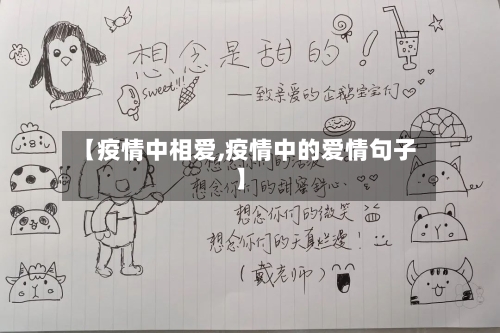 想念是甜的！
sweet!!!
——致亲爱的企鹅宝宝们
【疫情中相爱,疫情中的爱情句子
】
想念你们的甜蜜舒心
想念你们的微笑
想念你们的天真烂漫！
（戴老师）